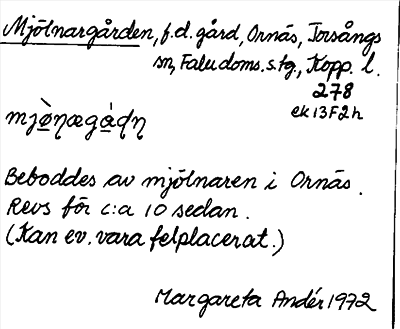 Mjölnargården, f.d. gård, Ornäs, Torsångs
sn, Falu doms. s.tg., Kopp. l.
278
ek 13F2h
Beboddes av mjölnaren i Ornäs.
Revs för c:a 10 sedan.
(Kan ev. vara felplacerat.)
Margareta Andér 1972